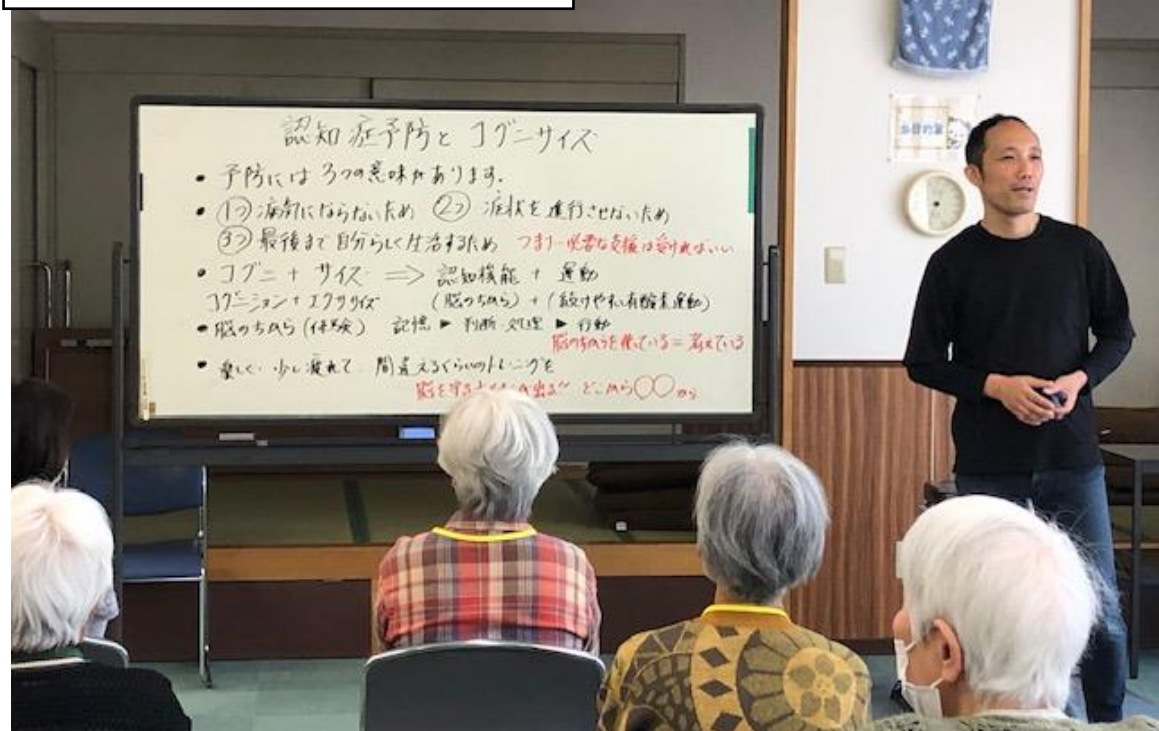 認知症予防とコグニサイズ
・予防には3つの意味があります。
・①つ 病気にならないため ②つ 症状を進行させないため
③つ 最後まで自分らしく生活するため つまり…必要な支援は受ければいい
・コグニ + サイズ ⇒ 認知機能 + 運動
コグニション+エクササイズ (脳のちから) + (続けやすい有酸素運動)
・脳のちから(体験) 記憶 ▶ 判断・処理 ▶ 行動
脳のちからを使っている=考えている
・楽しく・少し疲れて 間違えるぐらいのトレーニングを
脳を守る が出る" どこから〇〇から
今日の